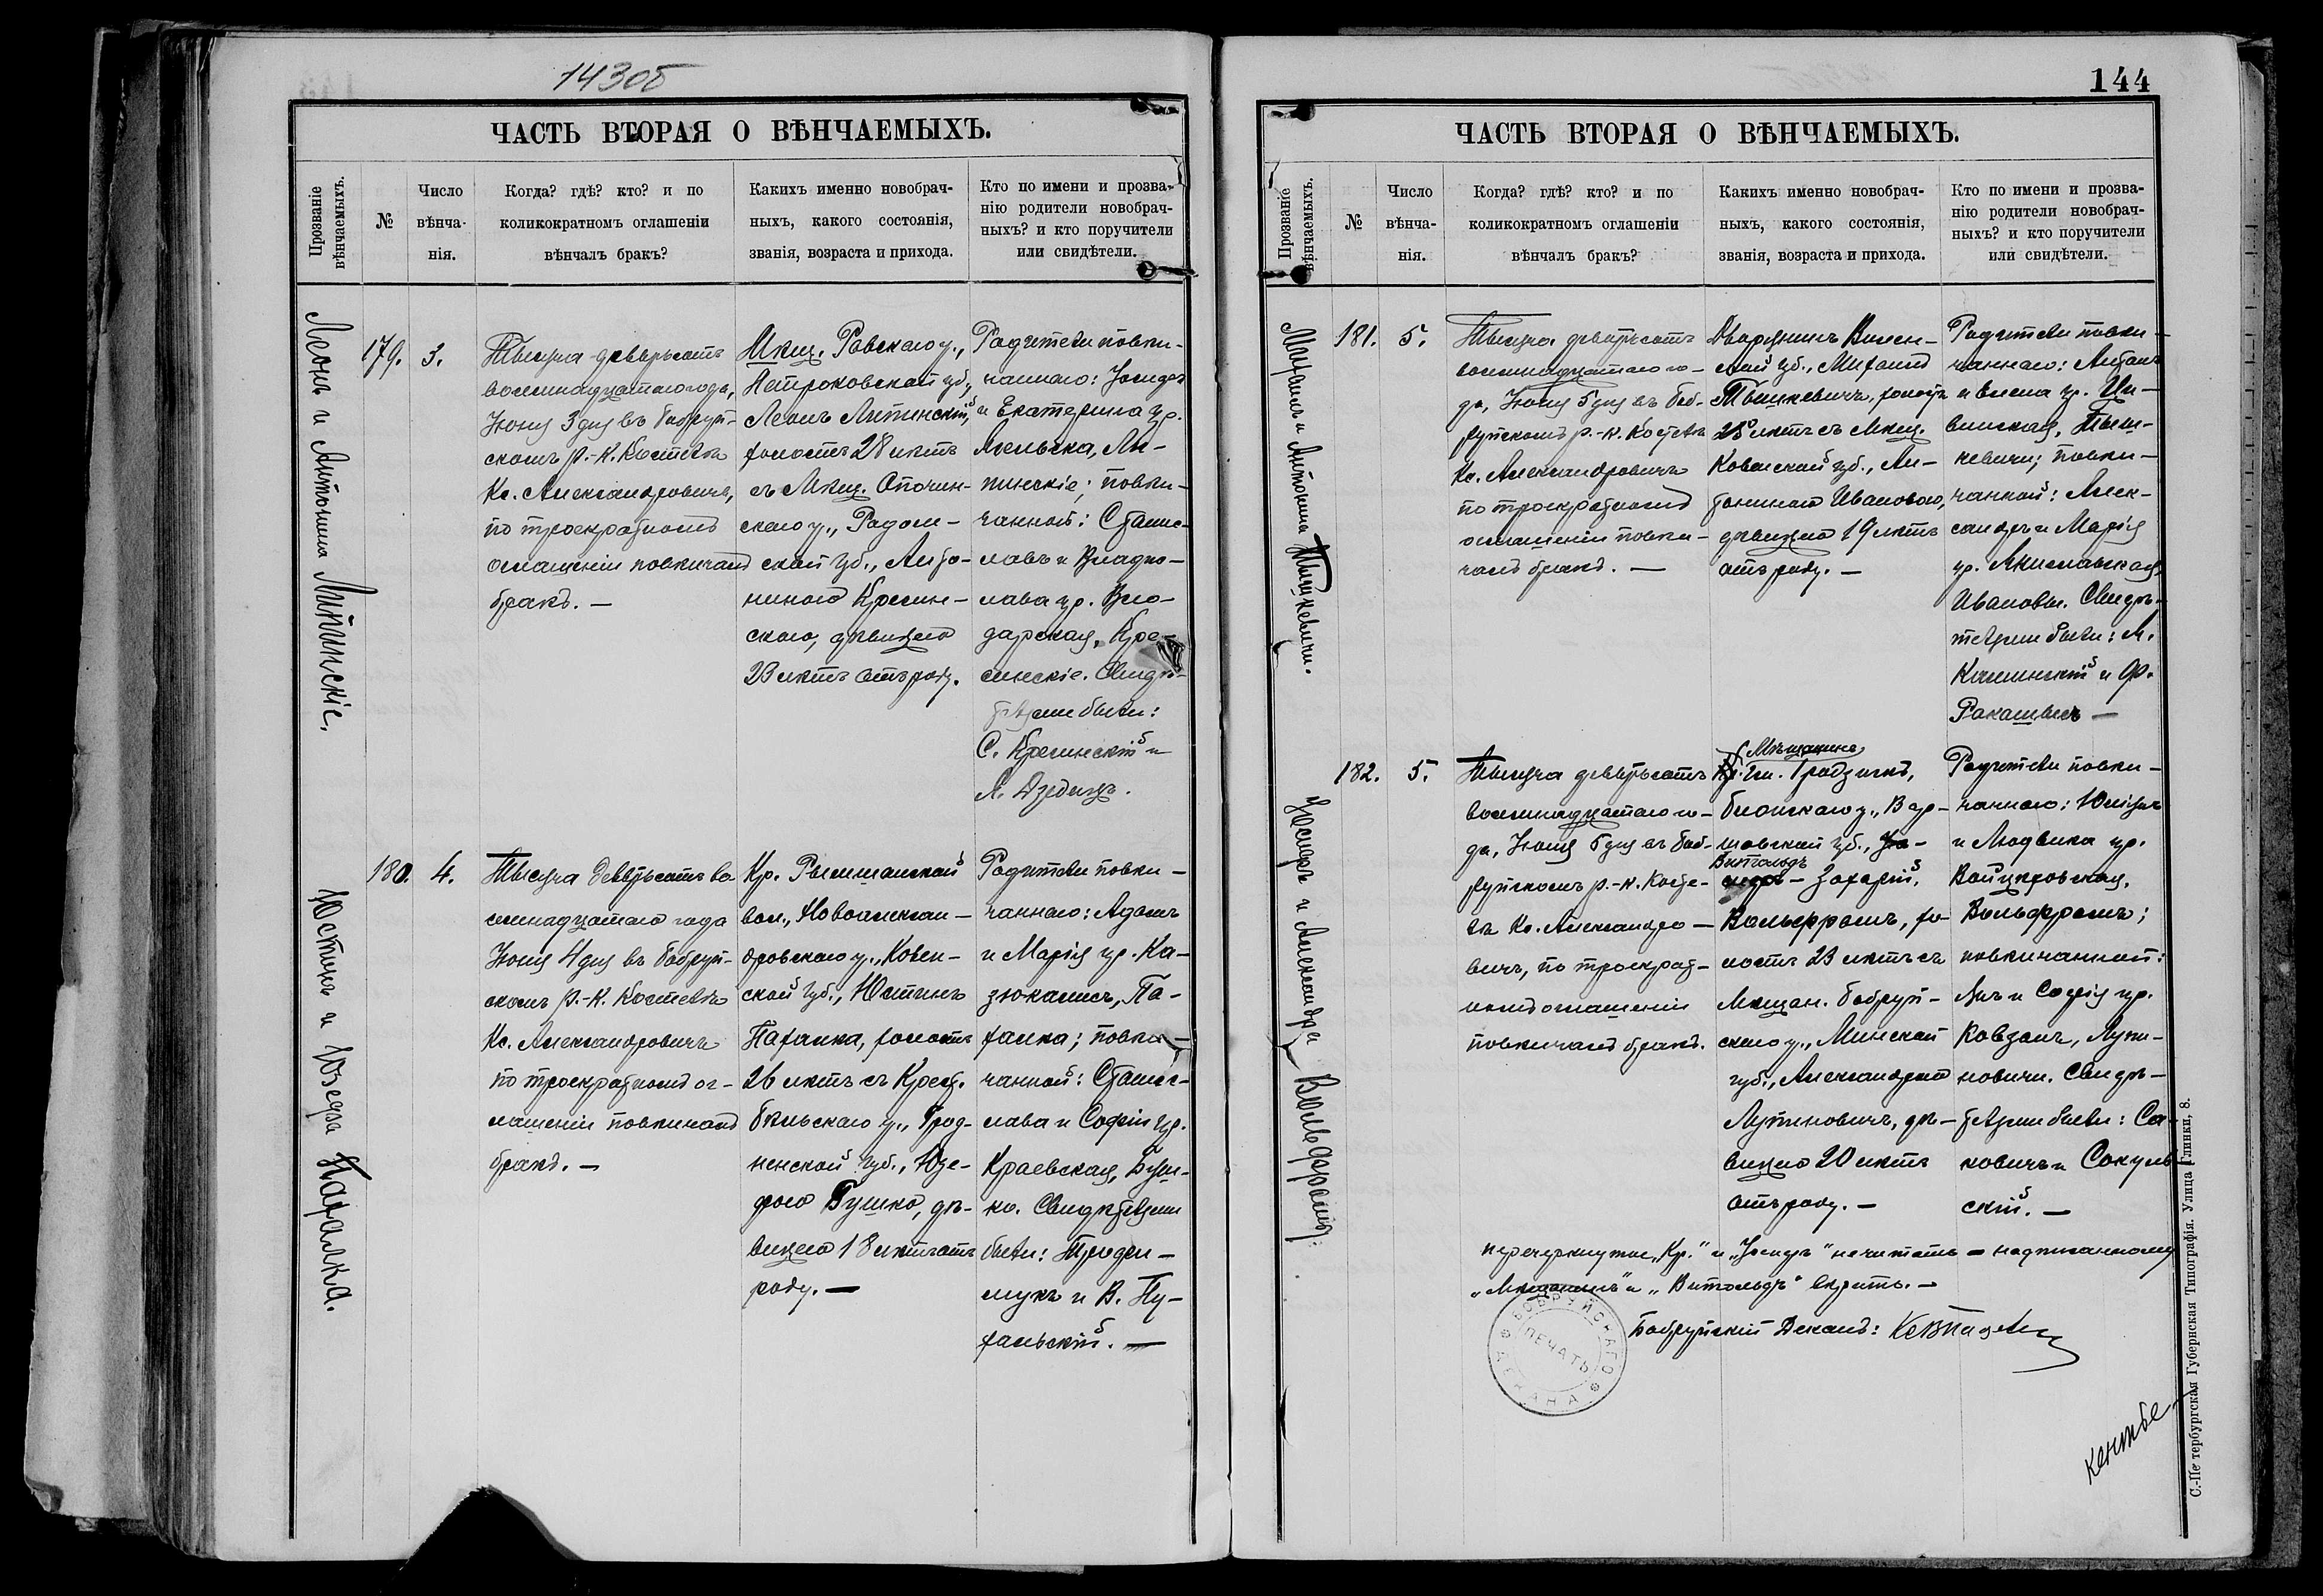 143об
ЧАСТЬ ВТОРАЯ О ВѢНЧАЕМЫХЪ.
Прозваніе
вѣнчаемыхъ.
№
Число
вѣнча-
нія.
Когда? гдѣ? кто? и по
коликократномъ оглашеніи
вѣнчалъ бракъ?
Какихъ именно новобрач-
ныхъ, какого состоянія,
званія, возраста и прихода.
Кто по имени и прозва-
нію родители новобрач-
ныхъ? и кто поручители
или свидѣтели.
Леонъ и Антонина Липинскіе.
179.
3.
Тысяча девятьсотъ
восемнадцатаго года,
Іюня 3 дня въ Бобруй-
скомъ р.-к. Костелѣ
Кс. Александровичъ,
по троекратномъ
оглашеніи повѣнчалъ
бракъ. —
Мѣщ. Равскаго у.,
Петроковской губ.,
Леонъ Липинскій,
холостъ 28 лѣтъ
съ Мѣщ. Опочин-
скаго у., Радом-
ской губ., Анто-
ниною Кресин-
скою, дѣвицею
23 лѣтъ отъ роду.
Родители повѣн-
чаннаго: Іосифъ
и Екатерина ур.
Ли-
пинскіе; повѣн-
чанной: Станис-
лавъ и Владис-
лава ур. Вло-
дарская, Кре-
синскіе. Свидѣ-
телями были:
С. Кресинскій и
Юстинъ и Юзефа Пахалка.
180.
4.
Тысяча девятьсотъ во
семнадцатаго года
Іюня 4 дня въ Бобруй-
скомъ р.-к. Костелѣ
Кс. Александровичъ
по троекратномъ ог-
лашеніи повѣнчалъ
бракъ. —
Кр. Рымшанской
вол., Новоалексан-
дровскаго у., Ковен-
ской губ., Юстинъ
Пахалка, холостъ
26 лѣтъ съ Крест.
Бѣльскаго у., Грод-
ненской губ., Юзе-
фою Бушко, дѣ-
вицею 18 лѣтъ отъ
роду. —
Родители повѣн-
чаннаго: Адамъ
и Марія ур. Ка-
зюканисъ, Па-
халка; повѣн-
чанной: Станис-
лава и Софіи ур.
Краевская, Буш-
ко. Свидѣтелями
были:
и В. Пу-
хальскій. —
144
ЧАСТЬ ВТОРАЯ О ВѢНЧАЕМЫХЪ.
Прозваніе
вѣнчаемыхъ.
№
Число
вѣнча-
нія.
Когда? гдѣ? кто? и по
коликократномъ оглашеніи
вѣнчалъ бракъ?
Какихъ именно новобрач-
ныхъ, какого состоянія,
званія, возраста и прихода.
Кто по имени и прозва-
нію родители новобрач-
ныхъ? и кто поручители
или свидѣтели.
Михаилъ и Антонина Тышкевичи.
181.
5.
Тысяча девятьсотъ
восемнадцатаго го-
да, Іюня 5 дня въ Боб-
руйскомъ р.-к. Костелѣ
Кс. Александровичъ
по троекратномъ
оглашеніи повѣн-
чалъ бракъ. —
Дворянинъ Вилен-
ской губ., Михаилъ
Тышкевичъ, холостъ
лѣтъ съ Мѣщ.
Ковенской губ., Ан-
тониною Ивановою,
дѣвицею 19 лѣтъ
отъ роду. —
Родители повѣн-
чаннаго: Антонъ
и Елена ур. Ил-
винская, Тыш-
кевичи; повѣн-
чанной: Алек-
сандръ и Марія
ур.
Ивановы. Свидѣ-
телями были: А.
Калинскій и Ф.
Рокашевъ —
Іосифъ и Александра Вольффрамъ.
182.
5.
Тысяча девятьсотъ
восемнадцатаго го-
да, Іюня 5 дня въ Боб-
руйскомъ р.-к. Косте-
лѣ Кс. Александро-
вичъ, по троекрат-
номъ оглашеніи
повѣнчалъ бракъ.
Мѣщанинъ
Кр. Гродзискъ,
Блонскаго у., Вар-
шавской губ., Іо-
Витольдъ
сифъ - Захарій,
Вольффрамъ, хо-
лостъ 23 лѣтъ съ
Мѣщан. Бобруй-
скаго у., Минской
губ., Александрою
Лупиновичъ, дѣ-
вицею 20 лѣтъ
отъ роду. —
Родители повѣн-
чаннаго: Юліанъ
и Людвика ур.
Войцѣховская,
Вольффрамъ;
повѣнчанной:
и Софія ур.
Ковзанъ, Лупи-
новичи. Свидѣ-
телями были: Са
ковичъ и Сокуль
скій. —
перечеркнутое „Кр." и „Іосифъ" не читать — надписанному
„Мѣщанинъ" и „Витольдъ" вѣрить. —
Бобруйскій Деканъ:
БОБРУЙСКАГО ДЕКАНА
ПЕЧАТЬ
С.-Петербургская Губернская Типографія. Улица Глинки, 8.